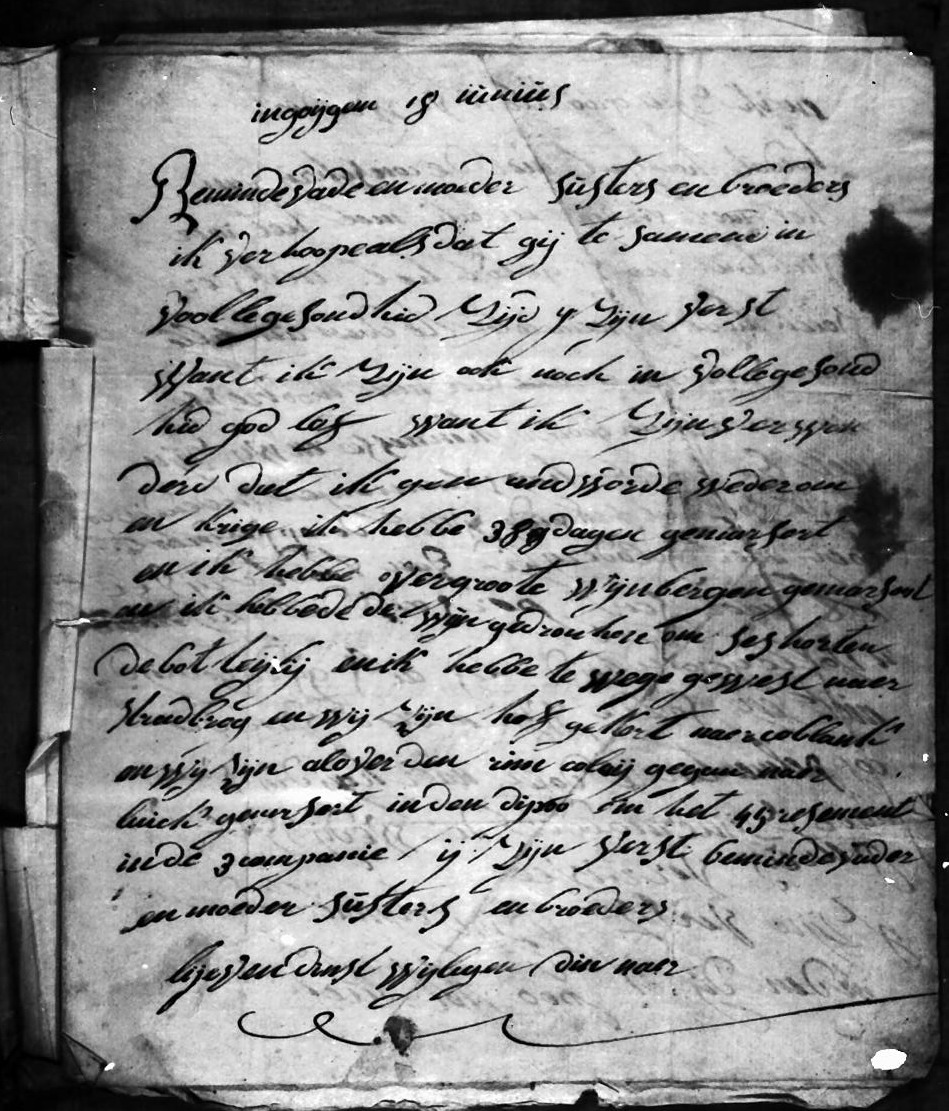 ingoijgem 18 iunius
Beminde vade en moeder susters en broeders
ik verhoope als dat gij te samene in
volle gesondhid zijd y zijn verst
want ik zijn ook noch in volle gesond
hid god lof want ik zijn verwon
dere dat ik geen andworde wederom
en krige ik hebbe 38 dagen gemarsert
en ik hebbe over groote wijnbergen gemarsert
en ik hebbe de wijn gedronken om ses
de botteijlij en ik hebbe te wege gewest naer
en wij zijn naer coblank
en wij zijn al over den rim gegaen naer
luick gemarsert in den dipoo in het 45 resement
in de 3 companie ij zijn verst beminde vader
en moeder susters en broeders
lijeven denst din naer